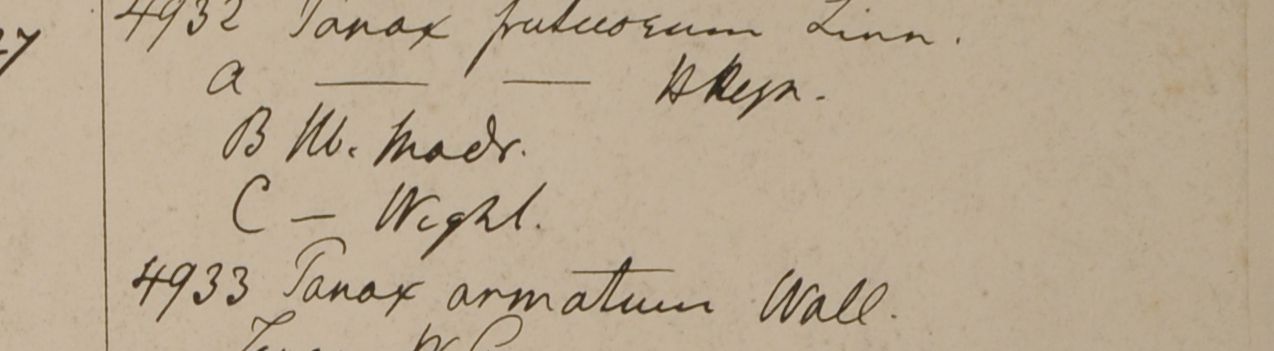 27
4932 Panax fruticosum Linn.
a — — HRegn.
B Hb. Madr.
C — Wight.
4933 Panax armatum Wall.